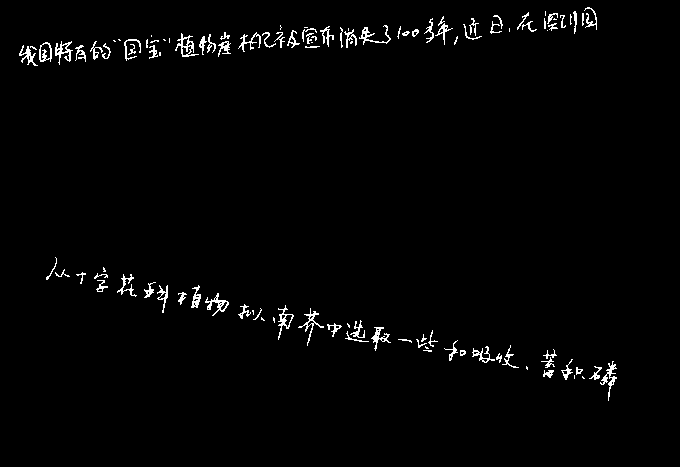 我国特有的“国宝”植物崖柏已被宣布消失了100多年,近日,在深圳园
从十字花科植物拟南芥中选取一些和吸收、蓄积磷